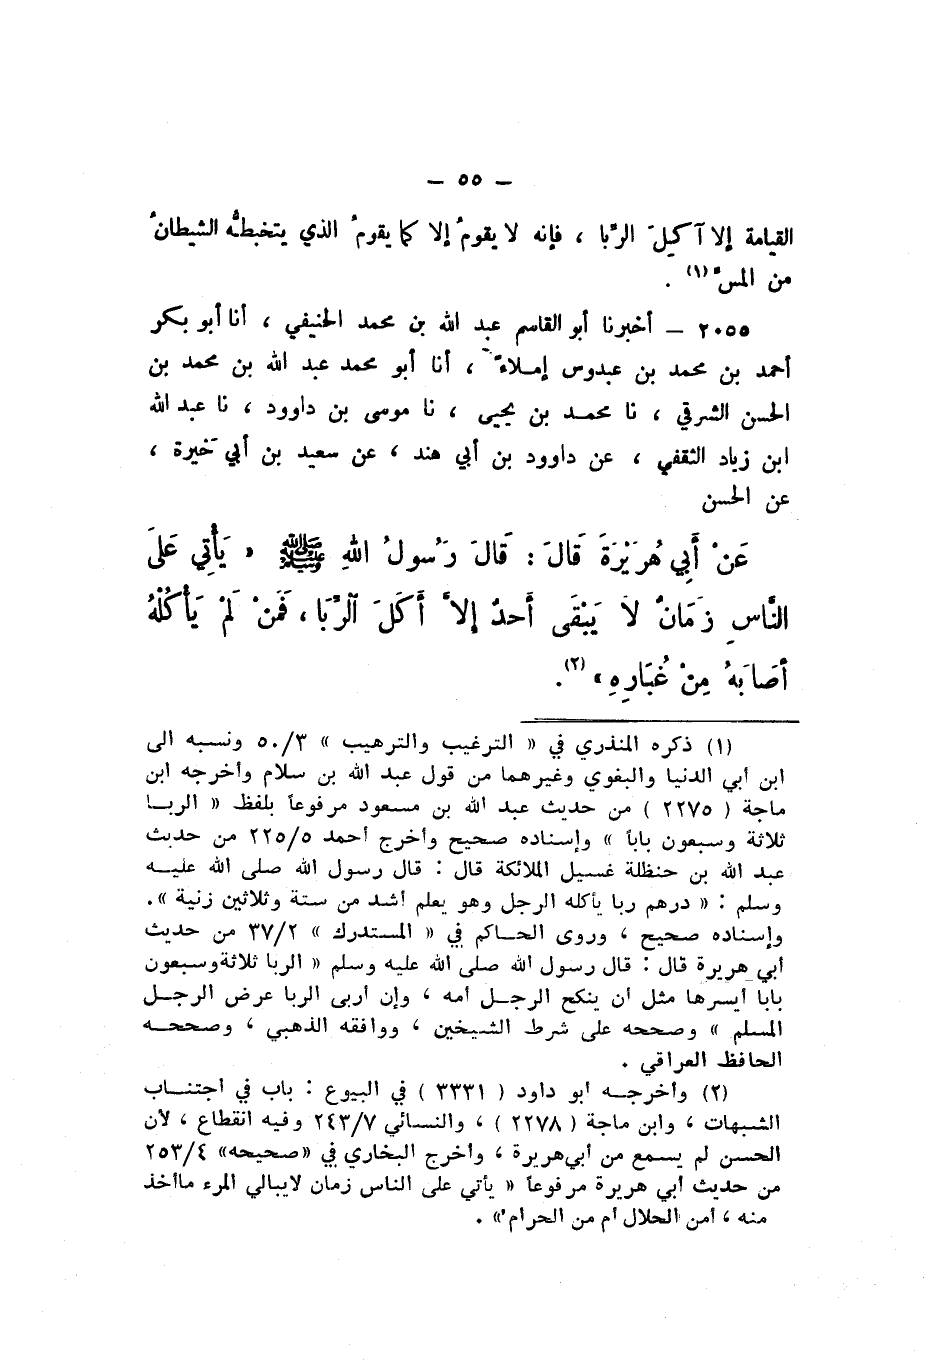 — ٥٥ —
القيامة إلا آكِلَ الرِّبا ، فإنه لا يقومُ إلا كما يقومُ الذي يتخبطهُ الشيطانُ
من المسّ (١) .
٢٠٥٥ — أخبرنا أبو القاسم عبد الله بن محمد الحنيفي ، أنا أبو بكر
أحمد بن محمد بن عبدوس إملاءً ، أنا أبو محمد عبد الله بن محمد بن
الحسن الشرقي ، نا محمد بن يحيى ، نا موسى بن داوود ، نا عبد الله
ابن زياد الثقفي ، عن داوود بن أبي هند ، عن سعيد بن أبي خَيرة ،
عن الحسن
عَنْ أَبِي هُرَيْرَةَ قَالَ : قَالَ رَسُولُ اللهِ ﷺ « يَأْتِي عَلَى
النَّاسِ زَمَانٌ لَا يَبْقَى أَحَدٌ إِلاَّ أَكَلَ الرِّبَا ، فَمَنْ لَمْ يَأْكُلْهُ
أَصَابَهُ مِنْ غُبَارِهِ » (٢) .
(١) ذكره المنذري في « الترغيب والترهيب » ٥٠/٣ ونسبه الى
ابن أبي الدنيا والبغوي وغيرهما من قول عبد الله بن سلام وأخرجه ابن
ماجة ( ٢٢٧٥ ) من حديث عبد الله بن مسعود مرفوعاً بلفظ « الربا
ثلاثة وسبعون باباً » وإسناده صحيح وأخرج أحمد ٢٢٥/٥ من حديث
عبد الله بن حنظلة غسيل الملائكة قال : قال رسول الله صلى الله عليه
وسلم : « درهم ربا يأكله الرجل وهو يعلم أشد من ستة وثلاثين زنية » .
وإسناده صحيح ، وروى الحاكم في « المستدرك » ٣٧/٢ من حديث
أبي هريرة قال : قال رسول الله صلى الله عليه وسلم « الربا ثلاثة وسبعون
بابا أيسرها مثل أن ينكح الرجل أمه ، وإن أربى الربا عرض الرجل
المسلم » وصححه على شرط الشيخين ، ووافقه الذهبي ، وصححه
الحافظ العراقي .
(٢) وأخرجه أبو داود ( ٣٣٣١ ) في البيوع : باب في اجتناب
الشبهات ، وابن ماجة ( ٢٢٧٨ ) ، والنسائي ٢٤٣/٧ وفيه انقطاع ، لأن
الحسن لم يسمع من أبي هريرة ، وأخرج البخاري في «صحيحه» ٢٥٣/٤
من حديث أبي هريرة مرفوعاً « يأتي على الناس زمان لايبالي المرء ماأخذ
منه ، أمن الحلال أم من الحرام » .